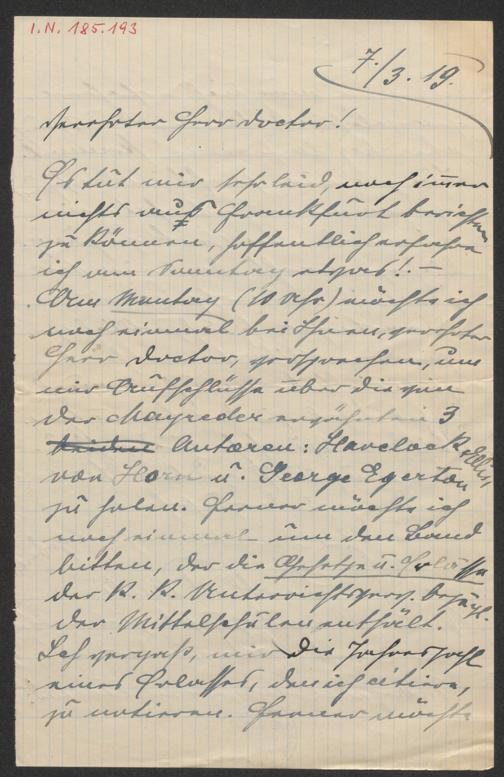 I.N. 185.193
7./3. 19.
Verehrter Herr Doctor!
Es tut mir sehr leid, noch immer
nichts aus Frankfurt berichten
zu können, hoffentlich erfahre
ich am Sonntag etwas! –
Am Montag (10 Uhr) möchte ich
noch einmal bei Ihnen, verehrter
Herr Doctor, vorsprechen, um
mir Aufschlüsse über die von
der Mayreder erwähnten 3
beiden Autoren: Havelock Ellis,
van Horn u. George Egerton
zu holen. Ferner möchte ich
noch einmal um den Band
bitten, der die Gesetze u. Erlässe
der k. k. Unterrichtsverw. bezügl.
der Mittelschulen enthält.
Ich vergaß, mir die Jahreszahl
eines Erlasses, den ich citiere,
zu notieren. Ferner möchte